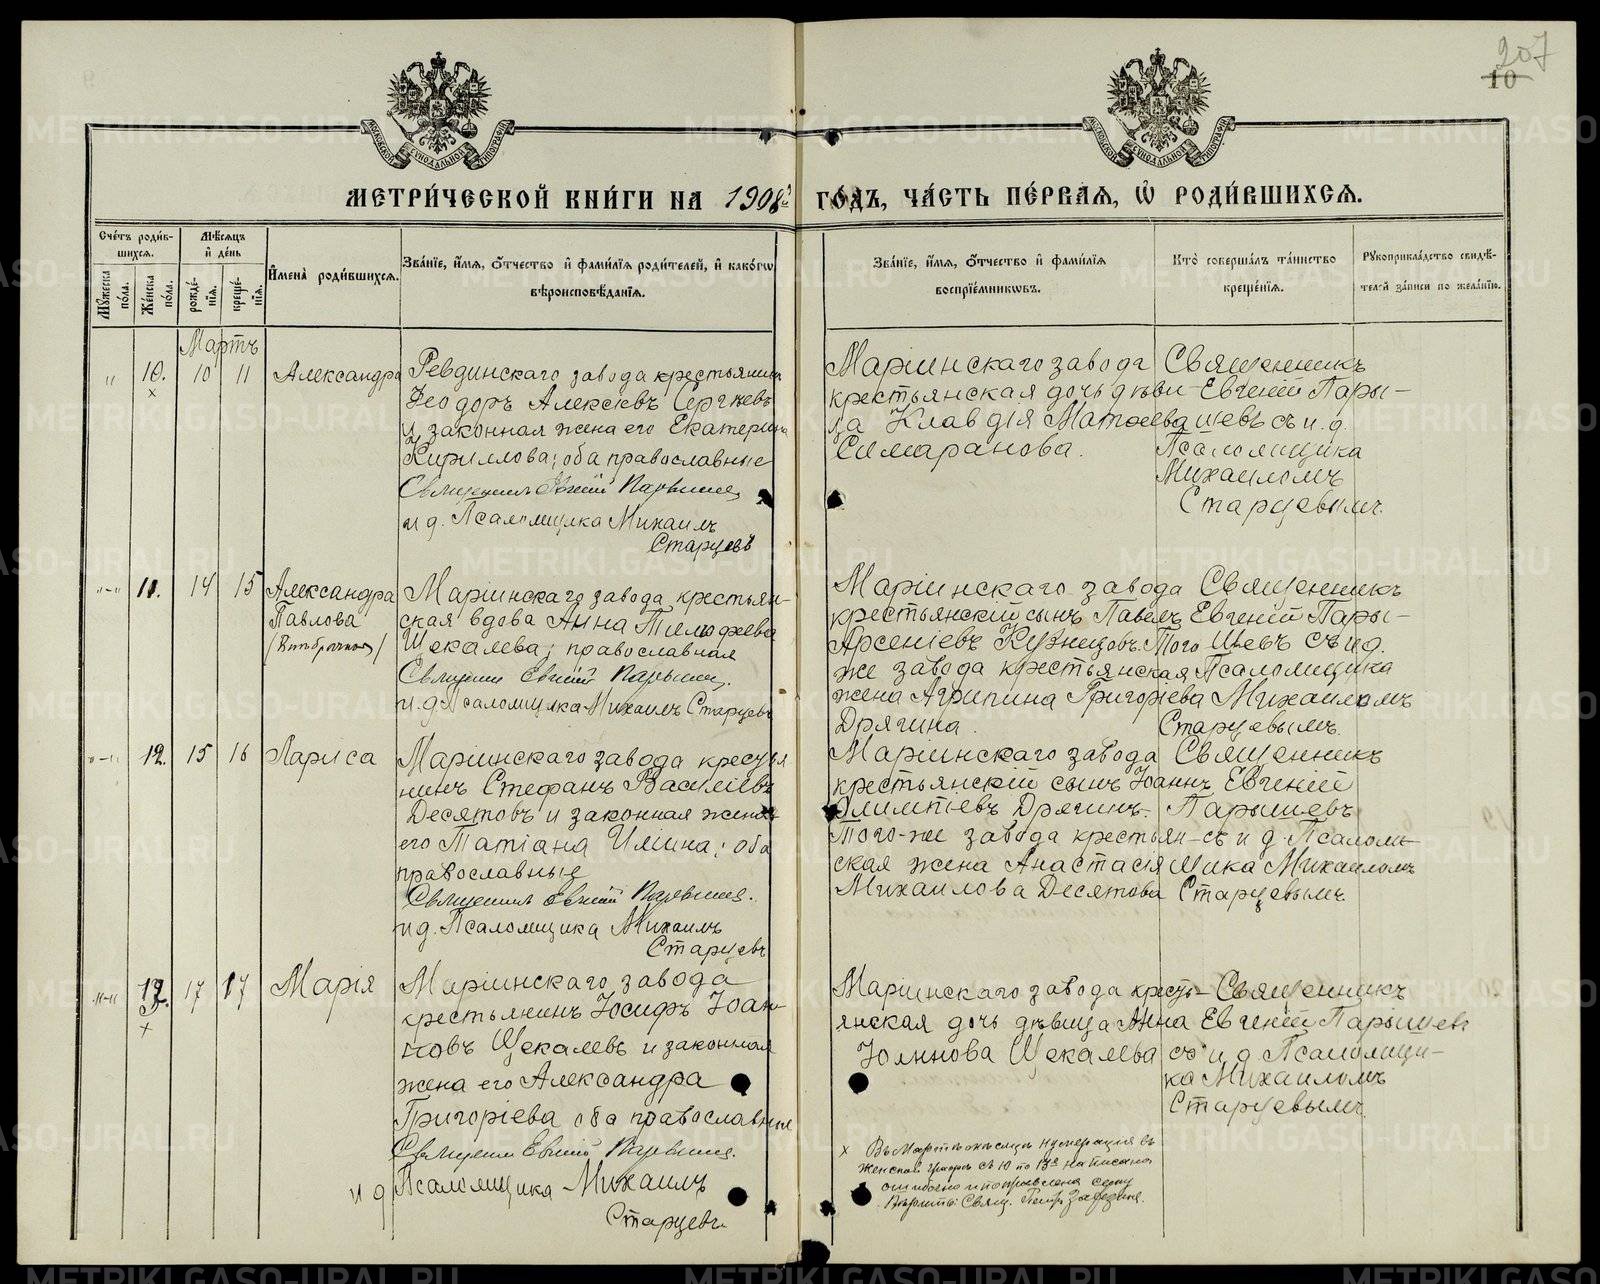 207
10
МОСКОВСКОЙ СѴНОДАЛЬНОЙ ТИПОГРАФІИ
МОСКОВСКОЙ СѴНОДАЛЬНОЙ ТИПОГРАФІИ
МЕТРИ́ЧЕСКОЙ КНИ́ГИ НА 1908й ГО́ДЪ, ЧА́СТЬ ПЕ́РВАѦ, Ѽ РОДИ́ВШИХСѦ.
Сче́тъ роди́в-
шихсѧ.
Мꙋ́жеска по́ла.
Же́нска по́ла.
Мѣ́сѧцъ
и҆ де́нь
рожде́-
нїѧ.
креще́-
нїѧ.
И҆мена̀ роди́вшихсѧ.
Зва́нїе, и҆́мѧ, ѻ҆́тчество и҆ фами́лїѧ роди́телей, и҆ како́гѡ
вѣроисповѣ́данїѧ.
Зва́нїе, и҆́мѧ, ѻ҆́тчество и҆ фами́лїѧ
воспрїе́мникѡвъ.
Кто̀ соверша́лъ та́инство
креще́нїѧ.
Рꙋкоприкла́дство свидѣ́-
телей за́писи по жела́нїю.
Мартъ
" 10. 10 11 Александра
х
Ревдинскаго завода крестьянинъ
Ѳеодоръ Алексѣевъ Сергѣевъ
и законная жена его Екатерина
Кириллова; оба православные
Священникъ Евгеній Парышевъ
и д. Псаломщика Михаилъ
Старцевъ
Маріинскаго завода
крестьянская дочь дѣви-
ца Клавдія Матѳеева
Симаранова.
Священникъ
Евгеній Пары-
шевъ съ и. д.
Псаломщика
Михаиломъ
Старцевымъ.
"-" 11. 14 15 Александра
Павлова
(Внѣбрачная)
Маріинскаго завода крестьян-
ская вдова Анна Тимофеева
Щекалева; православная
Священникъ Евгеній Парышевъ.
и. д Псаломщика Михаилъ Старцевъ
Маріинскаго завода
крестьянскій сынъ Павелъ
Арсеніевъ Кузнецовъ. Того
же завода крестьянская
жена Агрипина Григоріева
Дрягина.
Священникъ
Евгеній Пары-
шевъ съ и д.
Псаломщика
Михаиломъ
Старцевымъ.
"-" 12. 15 16 Лариса
Маріинскаго завода крестья
нинъ Стефанъ Василіевъ
Десятовъ и законная жена
его Татіана Илiина; оба
православные
Священникъ Евгеній Парышевъ.
и д. Псаломщика Михаилъ
Старцевъ
Маріинскаго завода
крестьянскій сынъ Іоаннъ
Олимпіевъ Дрягинъ.
Того-же завода крестьян-
ская жена Анастасія
Михаилова Десятова
Священникъ
Евгеній
Парышевъ
съ и д. Псалом-
щика Михаиломъ
Старцевымъ.
"-" 13. 17 17 Марія
х
Маріинскаго завода
крестьянинъ Іосифъ Іоан-
новъ Щекалевъ и законная
жена его Александра
Григоріева оба православные
Священникъ Евгеній Парышевъ.
и д Псаломщика Михаилъ
Старцевъ.
Маріинскаго завода кресть-
янская дочь дѣвица Анна
Іоаннова Щекалева
Священникъ
Евгеній Парышевъ
съ и д Псаломщи-
ка Михаиломъ
Старцевымъ.
х Въ Мартѣ мѣсяцѣ нумерація въ
женской графѣ съ 10 по 13й написана
ошибочно и поправлена
Свящ. Петръ
METRIKI.GASO-URAL.RU